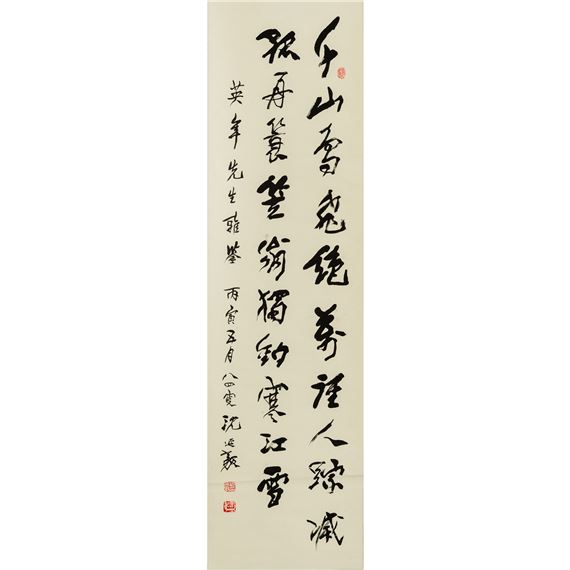 千山鳥飛絕萬徑人踪滅
孤舟蓑笠翁獨釣寒江雪
英年先生雅鑒 丙寅五月八四叟 沈延毅